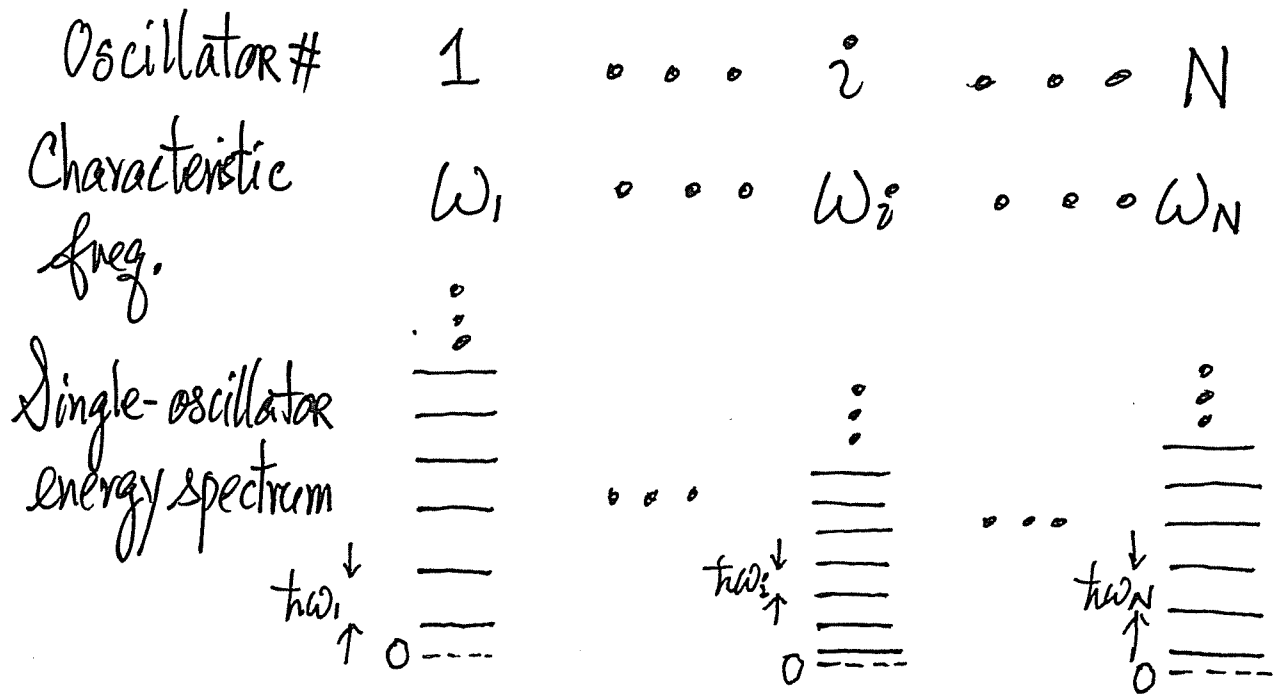 Oscillator # 1 ∘ ∘ ∘ i ∘ ∘ ∘ N
Characteristic
freq. ω₁ ∘ ∘ ∘ ωᵢ ∘ ∘ ∘ ω_N
Single-oscillator
energy spectrum
ħω₁ ħωᵢ ħω_N
0 0 0